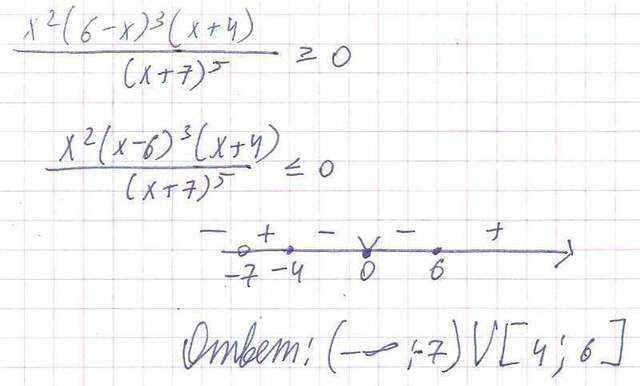 x²(6-x)³(x+4)
(x+7)⁵
≥ 0
x²(x-6)³(x+4)
(x+7)⁵
≤ 0
- + - - +
-7 -4 0 6
Ответ: (-∞; -7) V [4; 6]